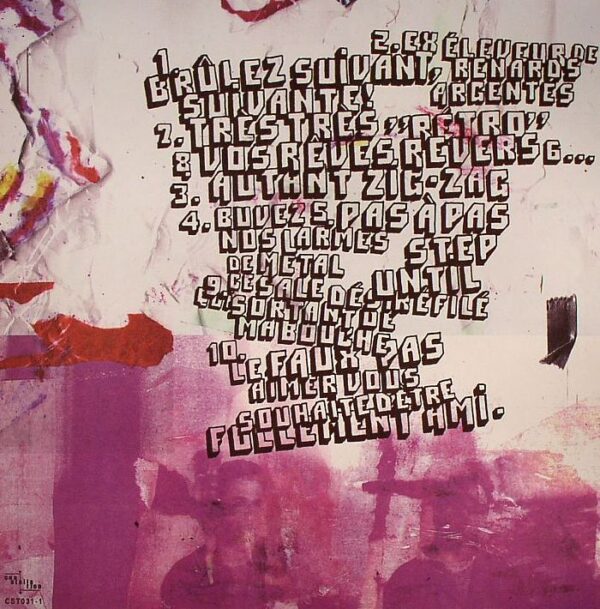 1. BRÛLEZ SUIVANT,
SUIVANTE!
2. EX ÉLEVEUR DE
RENARDS
ARGENTÉS
7. TRÈS TRÈS "RETRO"
8. VOS RÊVES, REVERS 6...
3. AUTANT ZIG-ZAG
4. BUVEZ
NOS LARMES
DE METAL
5. PAS À PAS
STEP
UNTIL
9. CES ALE DÉS KÉFILÉ
SORTANT DE
MA BOUCHE
10. LE FAUX PAS
AIMER VOUS
SOUHAITE D'ÊTRE
FOLLEMENT AMI.
CST031-1